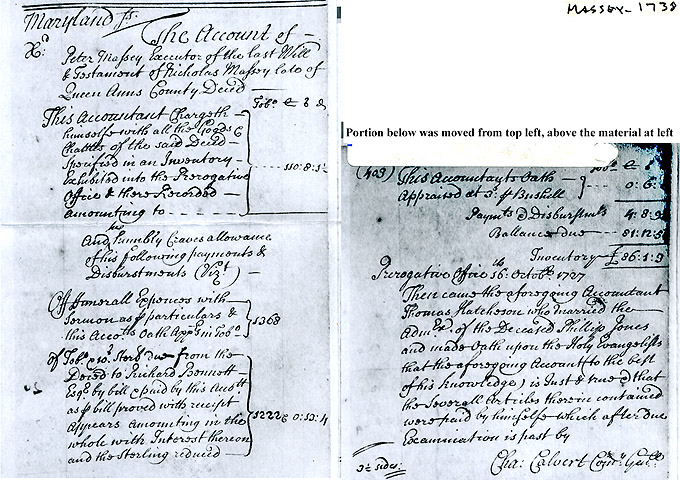 Maryland ss.
The Account of
Peter Massey Executor of the last Will
& Testament of Nicholas Massey late of
Queen Anns County Deced
Tobo £ S d
This Accountant Chargeth
himselfe with all the Goods &
Chattles of the said Deced
Specified in an Inventory
Exhibited into the Prerogative
Office & there Recorded
amounting to
110:8:1½
And humbly Craves allowance
of his following payments &
Disburstments (Vizt)
Of ffunerall Expences with
Sermon as p particulars &
this Accots Oath Apprs in Tobo
1368
Of Tobo & 10s Sterl due from the
Deced to Richard Bennett
Esqr by bill & paid by this Acct
as p bill proved with receipt
Appears amounting in the
whole with Interest thereon
and the Sterling reduced
5222 & 0:13:4
MASSEY - 1738
Portion below was moved from top left, above the material at left
(403) This Accountants Oath
Appraised at p Bushell
0:6:
Paymts & Disburstmts 4:8:9
Ballance due 81:12:
Inventory £86:1:9
Prerogative Office 16: Octobr 1727
Then came the aforegoing Accountant
Thomas Hatcheson who married the
Admx of the Deceased Phillip Jones
and made Oath upon the Holy Evangelists
that the aforegoing Account (to the best
of his knowledge) is Just & true & that
the Severall Articles therein contained
were paid by himselfe which after due
Examination is past by
Cha: Calvert Comry Genll
sides: